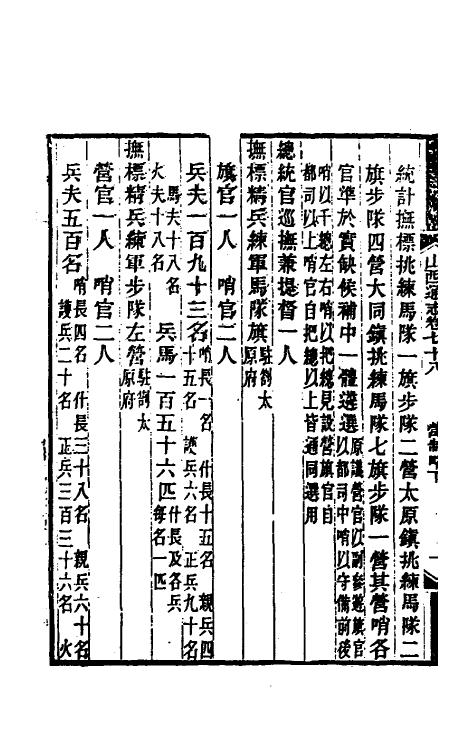 山西通志卷七十八　營制略下
統計撫標挑練馬隊一旗步隊二營太原鎮挑練馬隊二
旗步隊四營大同鎮挑練馬隊七旗步隊一營其營哨各
官準於實缺候補中一體遴選原議營官以副參遊旗官以都司中哨以守備前後
哨以千總左右哨以把總見設營旗官自
都司以上哨官自把總以上皆通同選用
總統官巡撫兼提督一人
撫標精兵練軍馬隊旗駐劄太原府
旗官一人　哨官二人
兵夫一百九十三名哨長一名　什長十五名　親兵四十五名　護兵六名　正兵九十名
馬夫十八名
火夫十八名　兵馬一百五十六匹什長及各兵每名一匹
撫標精兵練軍步隊左營駐劄太原府
營官一人　哨官二人
兵夫五百名哨長四名　什長三十八名　親兵六十名
護兵二十名　正兵三百三十六名　火